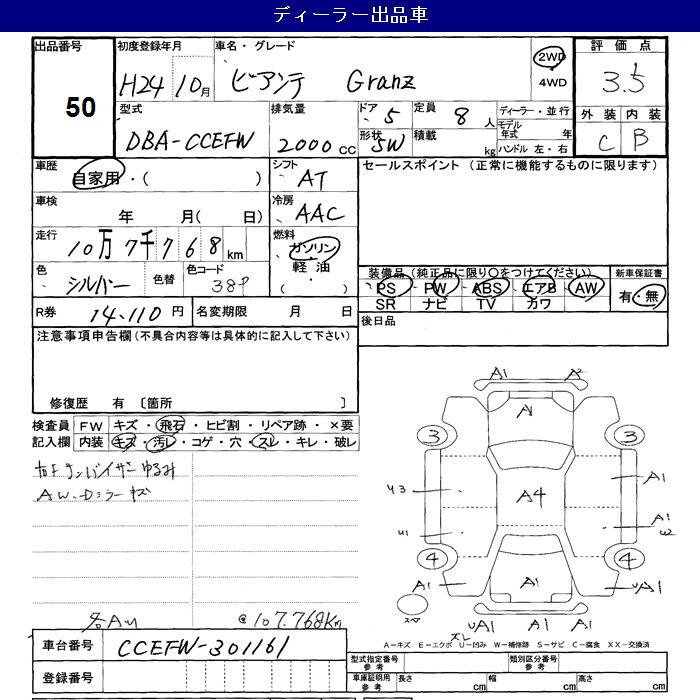 ディーラー出品車
出品番号 50
初度登録年月 H24 10月
車名・グレード ビアンテ Granz
2WD
4WD
評価点 3.5
型式 DBA-CCEFW
排気量 2000 CC
ドア 5
形状 SW
定員 8 人
積載 kg
ディーラー・並行
モデル年式 年
ハンドル 左・右
外装 C
内装 B
車歴 自家用・( )
シフト AT
セールスポイント (正常に機能するものに限ります)
車検 年 月( 日)
冷房 AAC
走行 10万7千768km
燃料 ガソリン
軽油
( )
色 シルバー
色替
色コード 38P
装備品(純正品に限り○をつけてください)
新車保証書
PS PW ABS エアB AW
有・無
SR ナビ TV カワ
R券 14,110 円
名変期限 月 日
後日品
注意事項申告欄(不具合内容等は具体的に記入して下さい)
修復歴 有 〔箇所 〕
検査員 FW キズ・飛石・ヒビ割・リペア跡・×要
記入欄 内装 キズ・汚レ・コゲ・穴・スレ・キレ・破レ
サンバイザーゆるみ
AW、Dミラーキズ
各AU
@107,768Km
A1
A1
3 3
A1
A4
U3
A1
U1
U2
4 4
A1
A1
UA1
スペア
UA1 A1 A1
スレ
A−キズ E−エクボ U−凹み W−補修跡 S−サビ C−腐食 XX−交換済
車台番号 CCEFW-301161
型式指定番号 参考
類別区分番号 参考
登録番号
車庫証明用 参考
長さ cm
幅 cm
高さ cm